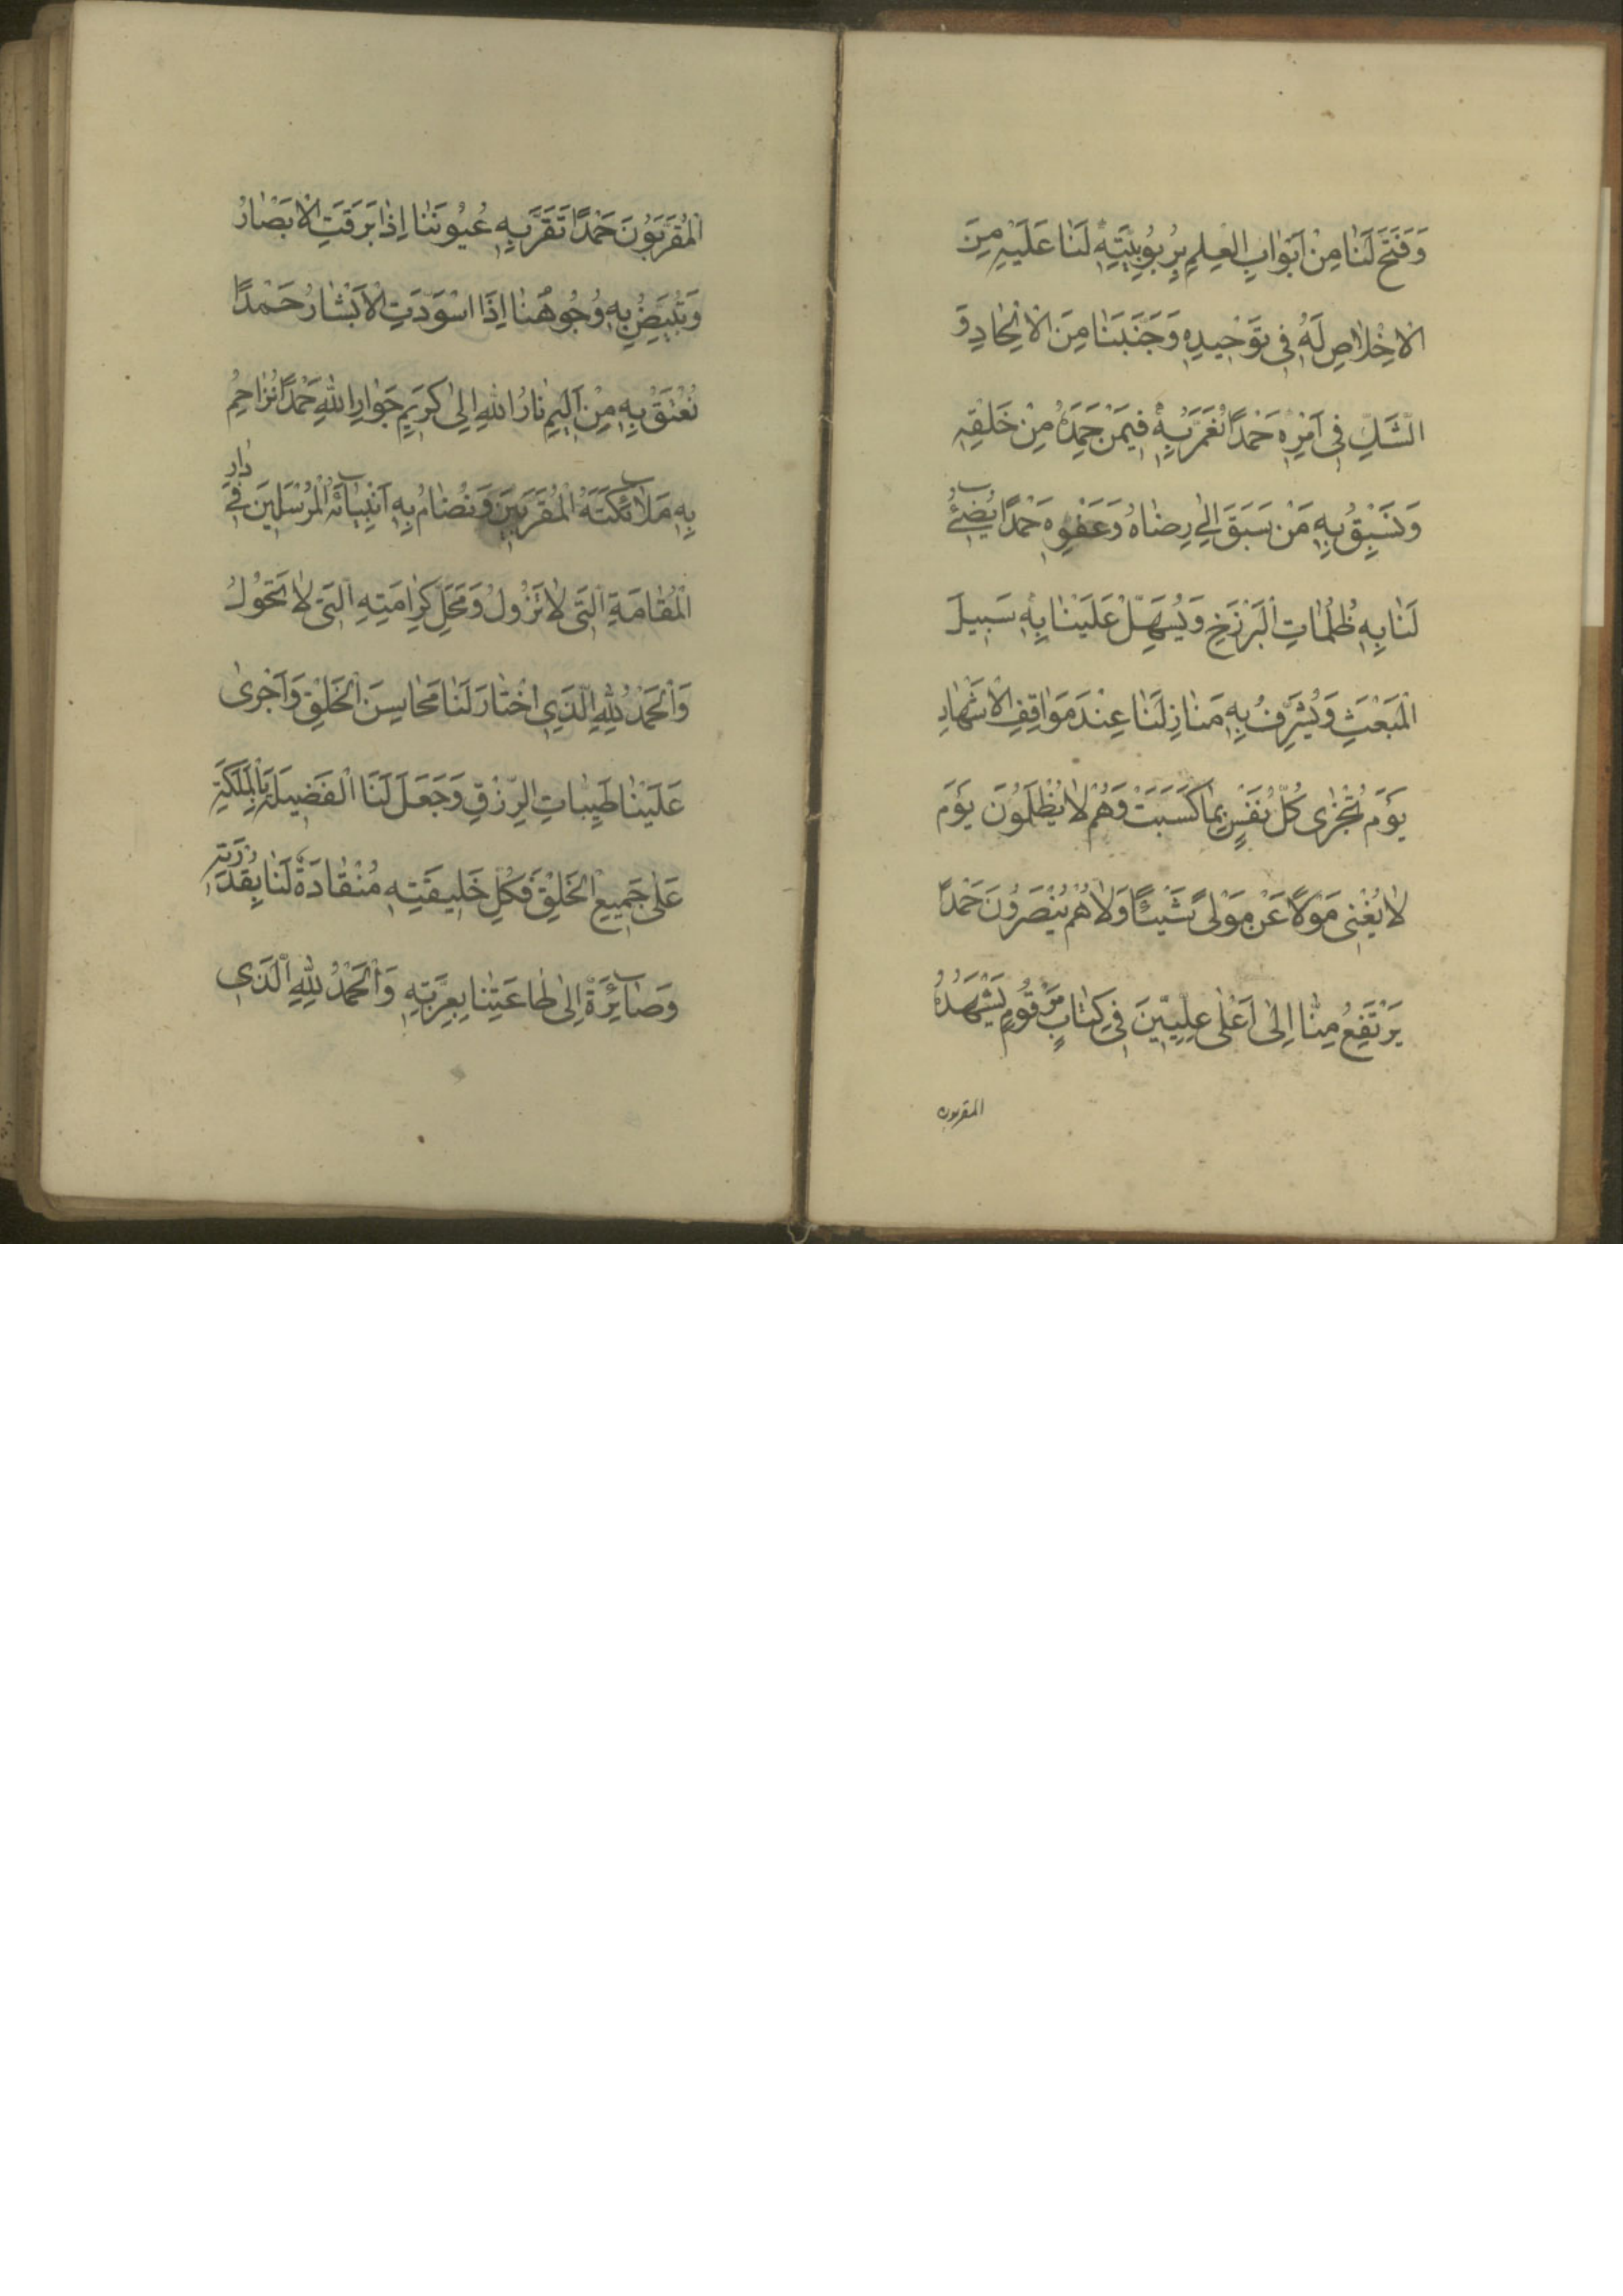 وَفَتَحَ لَنَا مِنْ اَبْوَابِ الْعِلْمِ بِرُبُوبِيَّتِهِ لَنَا عَلَيْهِ مِنَ
الْاِخْلَاصِ لَهُ فِي تَوْحِيدِهِ وَجَنَّبَنَا مِنَ الْاِلْحَادِ وَ
الشَّكِّ فِي اَمْرِهِ حَمْدًا نُعَمَّرُ بِهِ فِيمَنْ حَمِدَهُ مِنْ خَلْقِهِ
وَنَسْبِقُ بِهِ مَنْ سَبَقَ اِلٰى رِضَاهُ وَعَفْوِهِ حَمْدًا يُضِيئُ
لَنَا بِهِ ظُلُمَاتِ الْبَرْزَخِ وَيُسَهِّلُ عَلَيْنَا بِهِ سَبِيلَ
الْمَبْعَثِ وَيُشَرِّفُ بِهِ مَنَازِلَنَا عِنْدَ مَوَاقِفِ الْاَشْهَادِ
يَوْمَ تُجْزٰى كُلُّ نَفْسٍ بِمَا كَسَبَتْ وَهُمْ لَا يُظْلَمُونَ يَوْمَ
لَا يُغْنِي مَوْلًا عَنْ مَوْلًى شَيْئًا وَلَا هُمْ يُنْصَرُونَ حَمْدًا
يَرْتَفِعُ مِنَّا اِلٰى اَعْلٰى عِلِّيِّينَ فِي كِتَابٍ مَرْقُومٍ يَشْهَدُهُ
المقربون
الْمُقَرَّبُونَ حَمْدًا تَقَرُّ بِهِ عُيُونُنَا اِذَا بَرِقَتِ الْاَبْصَارُ
وَتَبْيَضُّ بِهِ وُجُوهُنَا اِذَا اسْوَدَّتِ الْاَبْشَارُ حَمْدًا
نُعْتَقُ بِهِ مِنْ اَلِيمِ نَارِ اللّٰهِ اِلٰى كَرِيمِ جَوَارِ اللّٰهِ حَمْدًا نُزَاحِمُ
بِهِ مَلَائِكَتَهُ الْمُقَرَّبِينَ وَنُضَامُّ بِهِ اَنْبِيَائَهُ الْمُرْسَلِينَ فِي دَارِ
الْمُقَامَةِ الَّتِي لَا تَزُولُ وَمَحَلِّ كَرَامَتِهِ الَّتِي لَا تَحُولُ
وَالْحَمْدُ لِلّٰهِ الَّذِي اخْتَارَ لَنَا مَحَاسِنَ الْخَلْقِ وَاَجْرٰى
عَلَيْنَا طَيِّبَاتِ الرِّزْقِ وَجَعَلَ لَنَا الْفَضِيلَةَ بِالْمَلَكَةِ
عَلٰى جَمِيعِ الْخَلْقِ فَكُلُّ خَلِيقَتِهِ مُنْقَادَةٌ لَنَا بِقُدْرَتِهِ
وَصَائِرَةٌ اِلٰى طَاعَتِنَا بِعِزَّتِهِ وَالْحَمْدُ لِلّٰهِ الَّذِي